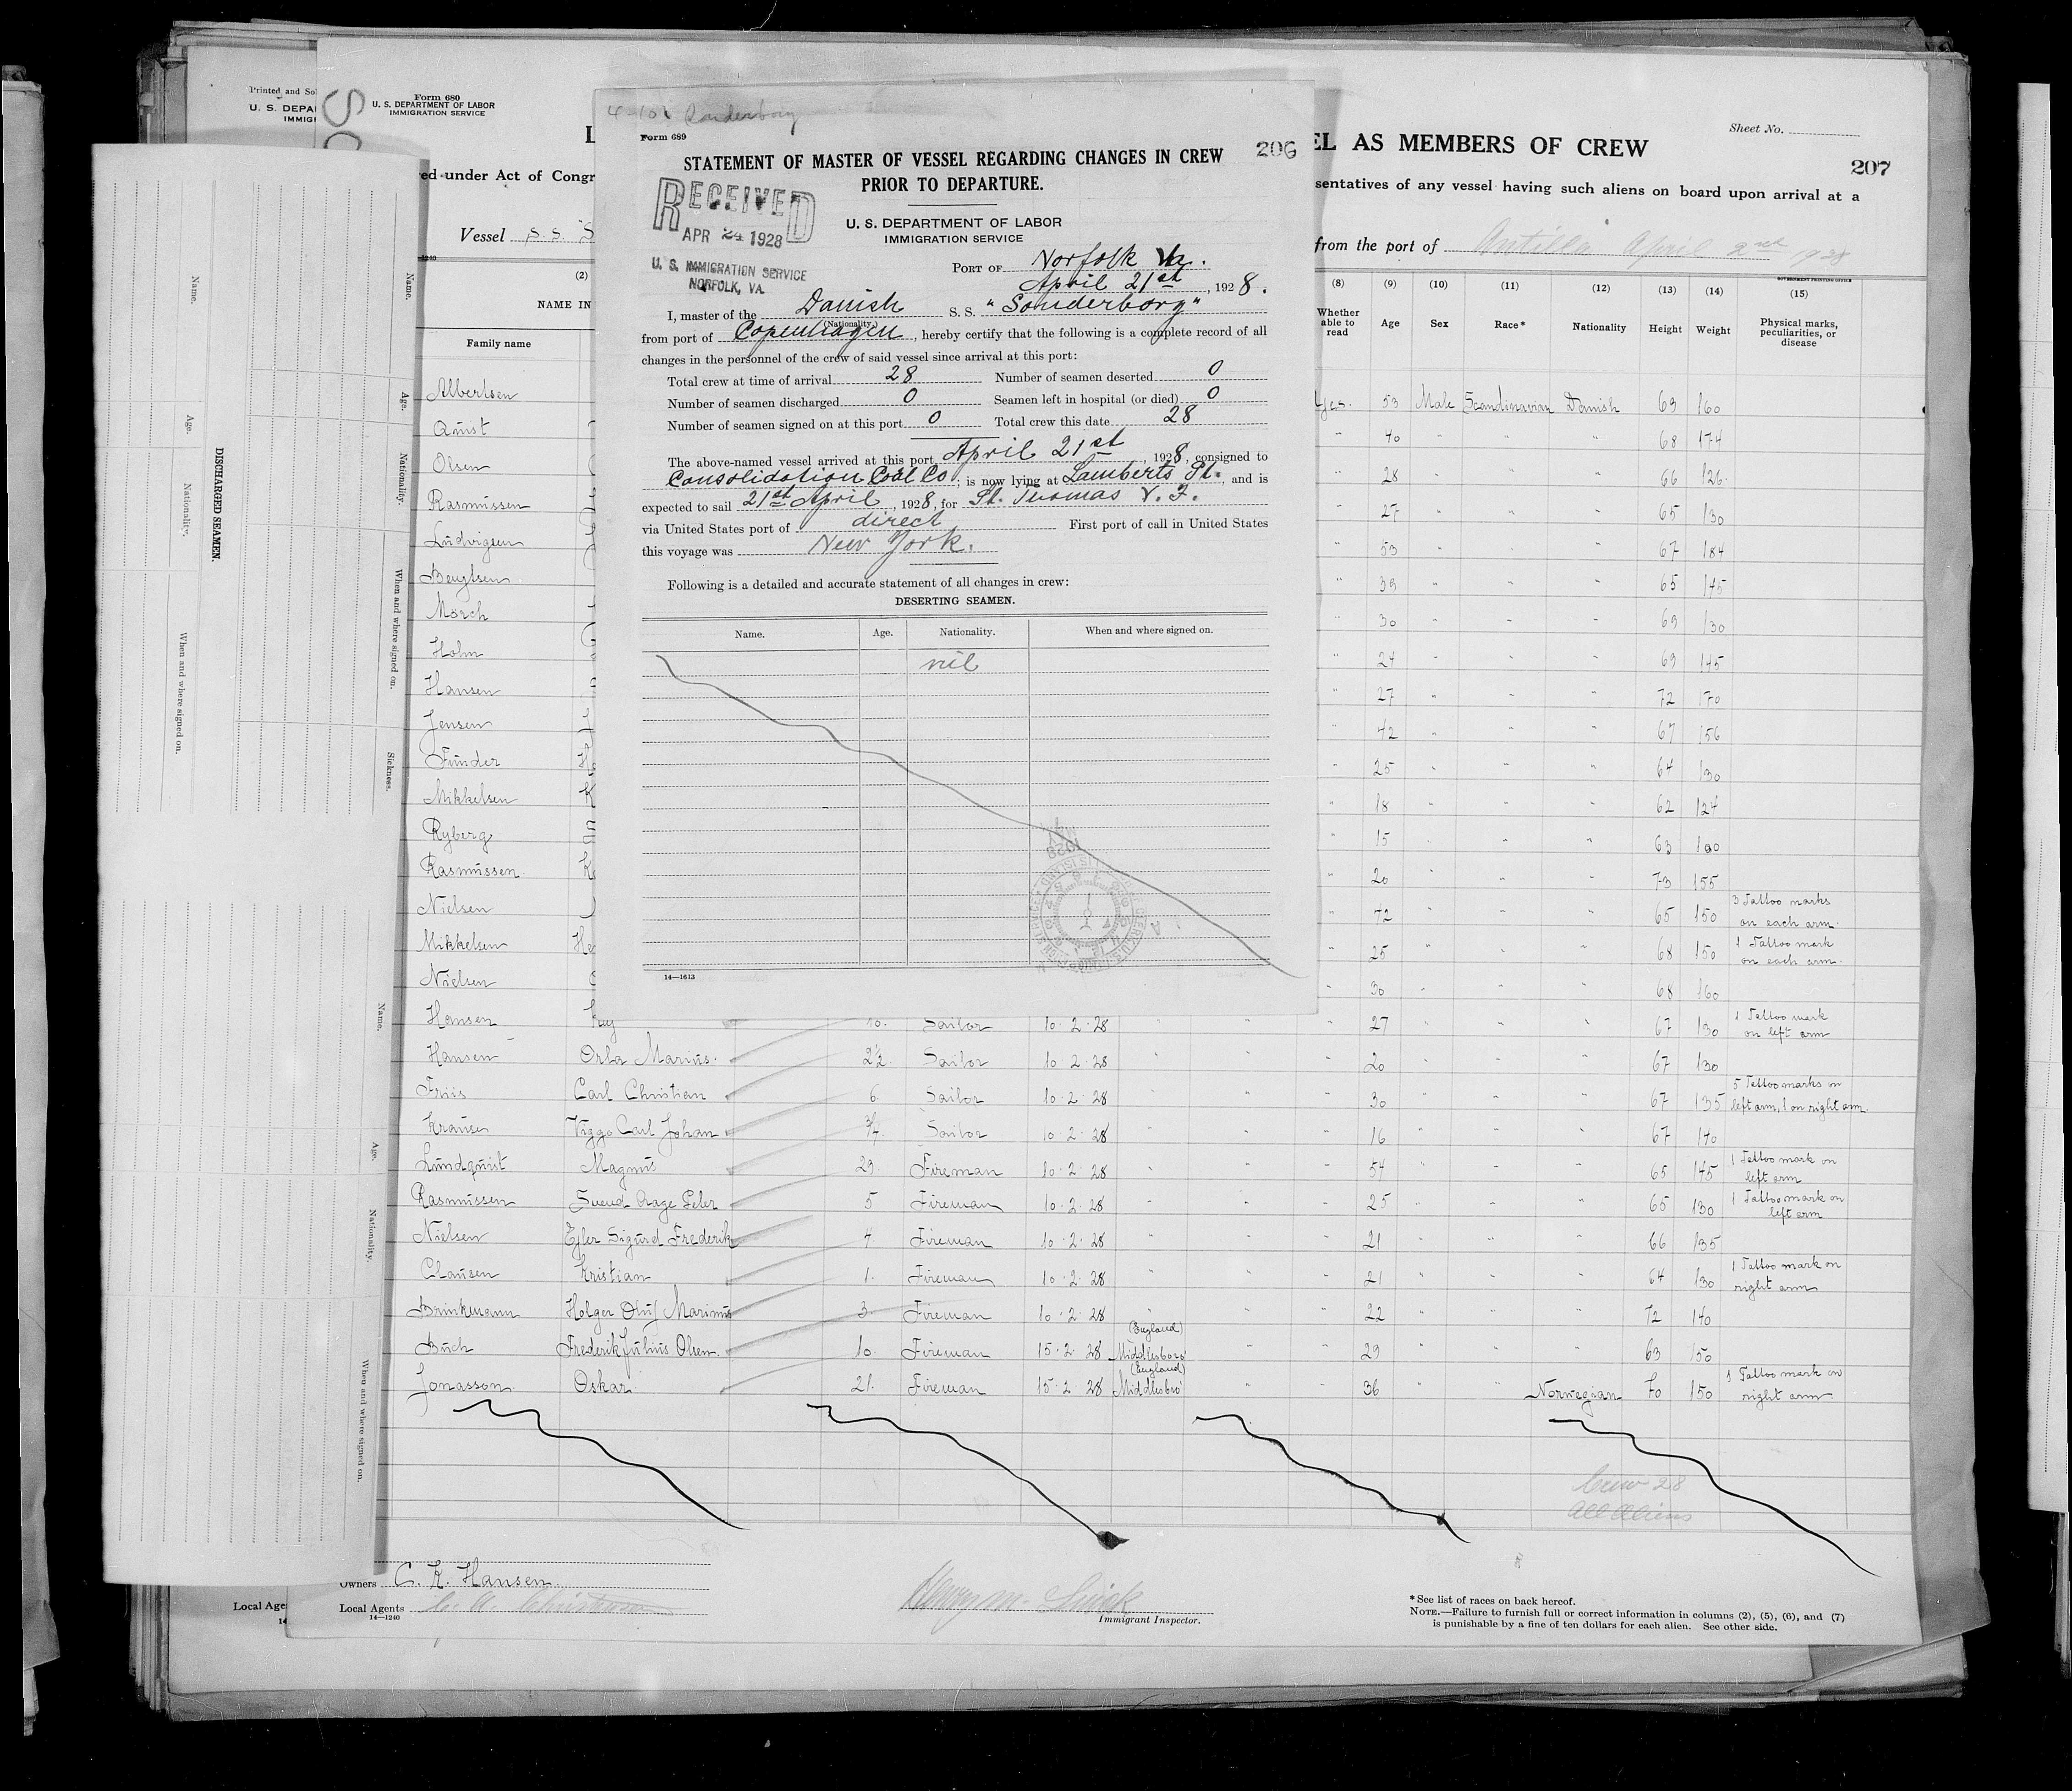 4-101 Sonderborg
Form 689
206
STATEMENT OF MASTER OF VESSEL REGARDING CHANGES IN CREW
PRIOR TO DEPARTURE.
RECEIVED
APR 24 1928
U. S. IMMIGRATION SERVICE
NORFOLK, VA.
U. S. DEPARTMENT OF LABOR
IMMIGRATION SERVICE
PORT OF Norfolk Va.
April 21st, 1928.
I, master of the Danish S. S. "Sonderborg"
(Nationality)
from port of Copenhagen, hereby certify that the following is a complete record of all
changes in the personnel of the crew of said vessel since arrival at this port:
Total crew at time of arrival 28 Number of seamen deserted 0
Number of seamen discharged 0 Seamen left in hospital (or died) 0
Number of seamen signed on at this port 0 Total crew this date 28
The above-named vessel arrived at this port April 21st, 1928, consigned to
Consolidation Coal Co., is now lying at Lamberts Pt., and is
expected to sail 21st April, 1928, for St. Thomas V. I.
via United States port of direct First port of call in United States
this voyage was New York.
Following is a detailed and accurate statement of all changes in crew:
DESERTING SEAMEN.
Name. Age. Nationality. When and where signed on.
nil
14—1613
Printed and Sol
U. S. DEPA
IMMIG
Form 680
U. S. DEPARTMENT OF LABOR
IMMIGRATION SERVICE
Sheet No.
L
EL AS MEMBERS OF CREW
207
ed under Act of Congr
sentatives of any vessel having such aliens on board upon arrival at a
Vessel S. S. S
from the port of Antilla April 2nd 1928
1240
GOVERNMENT PRINTING OFFICE
(2) (8) (9) (10) (11) (12) (13) (14) (15)
NAME IN
Family name
Whether able to read Age Sex Race* Nationality Height Weight Physical marks, peculiarities, or disease
Albertsen Yes. 53 Male Scandinavian Danish 69 160
Qvist " 40 " " " 68 174
Olsen " 28 " " " 66 126
Rasmussen " 27 " " " 65 130
Ludvigsen " 53 " " " 67 184
Bengtsen " 39 " " " 65 145
Mørch " 30 " " " 69 130
Holm " 24 " " " 69 145
Hansen " 27 " " " 72 170
Jensen " 42 " " " 67 156
Funder " 25 " " " 64 130
Mikkelsen " 18 " " " 62 124
Ryberg " 15 " " " 63 100
Rasmussen " 20 " " " 73 155
Nielsen " 42 " " " 65 150 3 Tattoo marks on each arm.
Mikkelsen " 25 " " " 68 150 1 Tattoo mark on each arm.
Nielsen " 30 " " " 68 160
Hansen Kay 10. Sailor 10.2.28 " " " 27 " " " 67 130 1 Tattoo mark on left arm
Hansen Orla Marius. 2½ Sailor 10.2.28 " " " 20 " " " 67 130
Friis Carl Christian 6 Sailor 10.2.28 " " " 30 " " " 67 135 5 Tattoo marks on left arm, 1 on right arm.
Krause Viggo Carl Johan ¾ Sailor 10.2.28 " " " 16 " " " 67 140
Lundquist Magnus 29. Fireman 10.2.28 " " " 54 " " " 65 145 1 Tattoo mark on left arm
Rasmussen Svend Aage Peter 5 Fireman 10.2.28 " " " 25 " " " 65 130 1 Tattoo mark on left arm
Nielsen Ejler Sigurd Frederik 4 Fireman 10.2.28 " " " 21 " " " 66 135
Clausen Kristian 1. Fireman 10.2.28 " " " 21 " " " 64 130 1 Tattoo mark on right arm
Brinkmann Holger Oluf Marinus 3. Fireman 10.2.28 " " " 22 " " " 72 140
Buch Frederik Julius Olsen. 10. Fireman 15.2.28 (England) Middlesboro' " " 29 " " " 63 150
Jonasson Oskar 21. Fireman 15.2.28 (England) Middlesbro' " " 36 " " Norwegian 70 150 1 Tattoo mark on right arm
Crew 28
All Aliens
Owners C. K. Hansen
Local Agents
14—1240
Local Age
14
Immigrant Inspector.
*See list of races on back hereof.
NOTE.—Failure to furnish full or correct information in columns (2), (5), (6), and (7)
is punishable by a fine of ten dollars for each alien. See other side.
DISCHARGED SEAMEN.
Name. Age. Nationality. When and where signed on.
Name. Age. Nationality. When and where signed on. Sickness.
Name. Age. Nationality. When and where signed on.